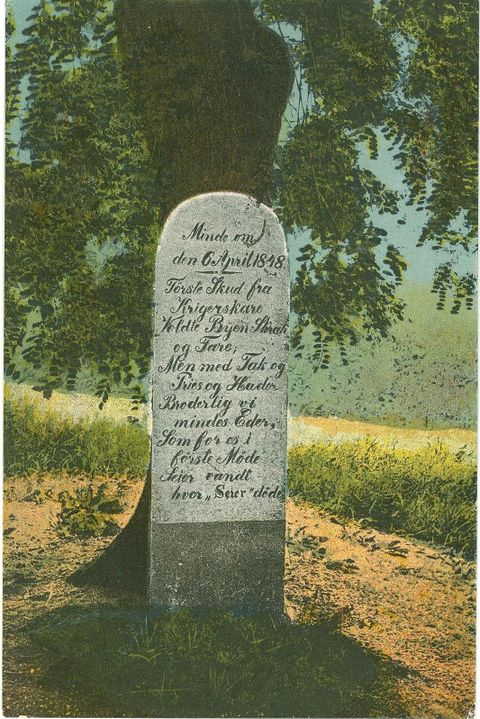 Minde om
den 6 April 1848
Förste Skud fra
Krigerskare
Voldte Byen Skræk
og Fare;
Men med Tak og
Pries og Hæder
Broderlig vi
mindes Eder,
Som for os i
förste Möde
Seier vandt
hvor „Seier" döde